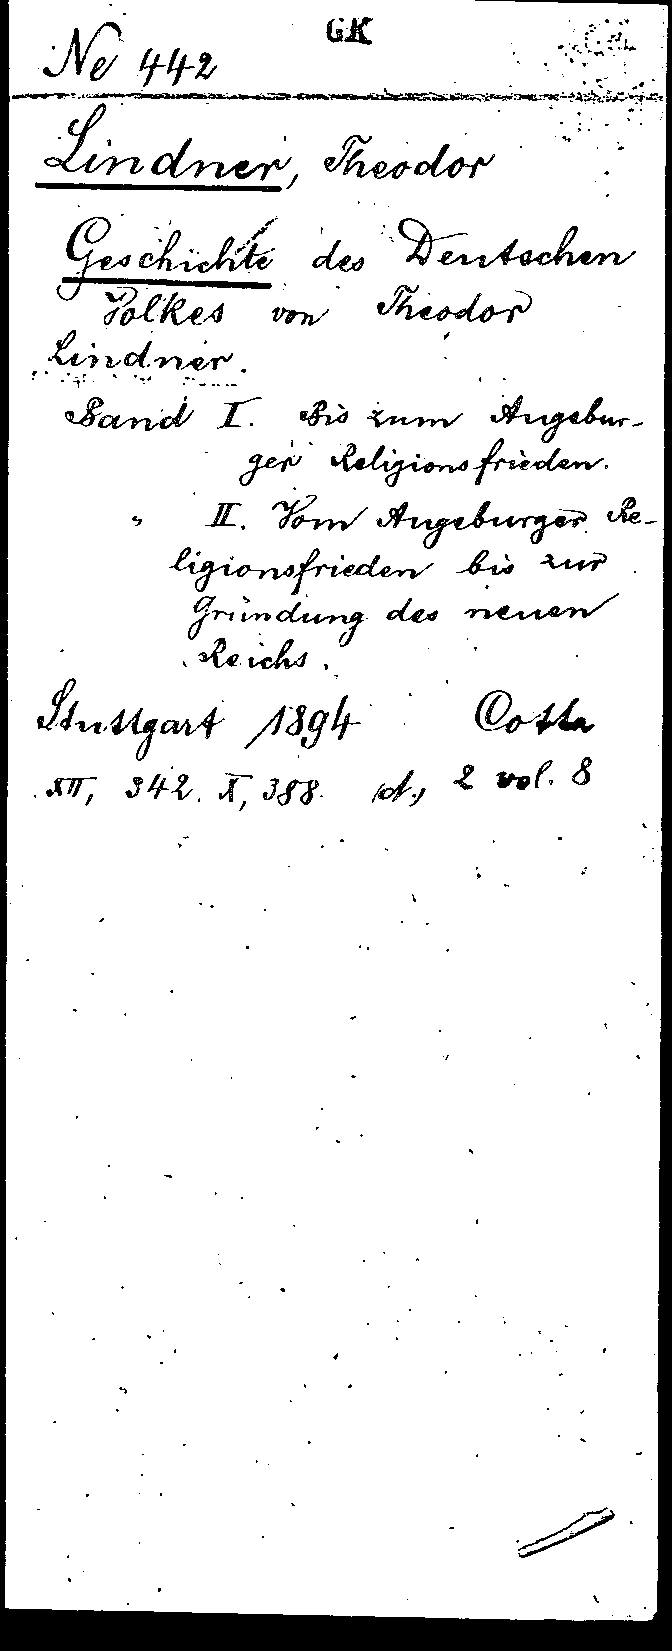 GK
Ne 442
Lindner, Theodor
Geschichte des Deutschen
Volkes von Theodor
Lindner.
Band I. Bis zum Augsbur-
ger Religionsfrieden.
" II. Vom Augsburger Re-
ligionsfrieden bis zur
Gründung des neuen
Reichs.
Stuttgart 1894 Cotta
XII, 342. X, 388. 2 vol. 8